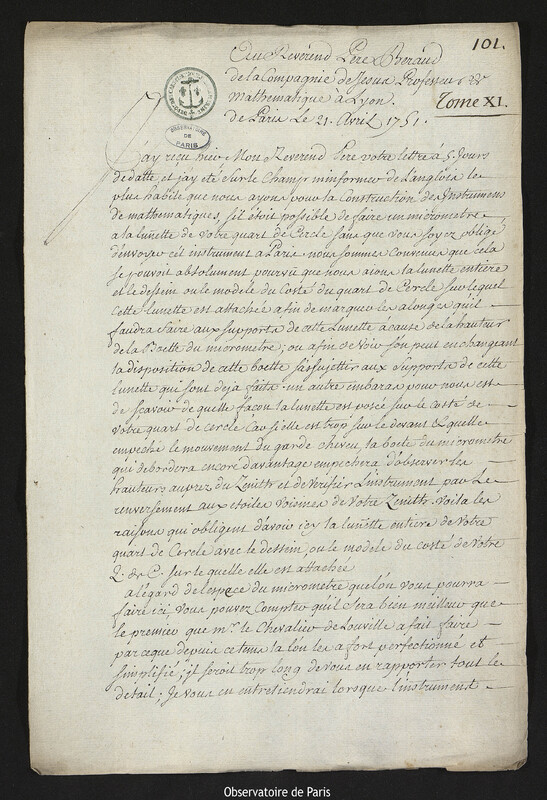 101.
Au Reverend Pere Beraud
de la Compagnie de Jesus Professeur de
Mathematique à Lyon.
Tome XI.
de Paris Le 21. Avril 1751.
OBSERVATOIRE
DE
PARIS
J'ay reçu hier Mon Reverend Pere votre lettre à 5. Jours
de datte et jay eté sur le champ m'informer de Langlois le
plus habile que nous ayons pour la Construction des Instrumens
de mathematiques, s'il étoit possible de faire un micrometre
a la lunette de votre quart de Cercle sans que vous soyez obligé
d'envoyer cet instrument a Paris. nous sommes Convenus que cela
se pouvoit absolument pourvû que nous aions la lunette entiere
et le dessein ou le modele du Costé du quart de Cercle sur lequel
cette lunette est attachée afin de marquer les alonges quil
faudra faire aux supports de cette Lunette à cause de la hauteur
de la Boette du micrometre; ou afin de voir s'on peut en changeant
la disposition de cette boette s'assujettir aux supports de cette
lunette qui sont deja faits. un autre embaras pour nous est
de scavoir de quelle façon la lunette est posée sur le costé de
votre quart de cercle Car si elle est trop sur le devant & quelle
empeche le mouvement du garde cheveu, la boete du micrometre
qui debordera encore davantage empechera d'observer les
hauteurs auprez du Zenith et de verifier L'instrument par Le
renversement aux etoiles voisines de Votre Zenith. Voila les
raisons qui obligent d'avoir icy la lunette entiere de Votre
quart de Cercle avec le dessein, ou le modele du costé de Votre
Q. de C. sur le quelle elle est attachée
a légard de l'espece du micrometre quelón vous pourra
faire ici, vous pouvez Compter quil sera bien meilleur que
le premier que mr. le Chevalier de Louville a fait faire
parceque depuis ce tems la lón les a fort perfectionné et
simplifié; jl seroit trop long de vous en rapporter tout le
detail; Je vous en entretiendrai lorsque l'instrument
Observatoire de Paris